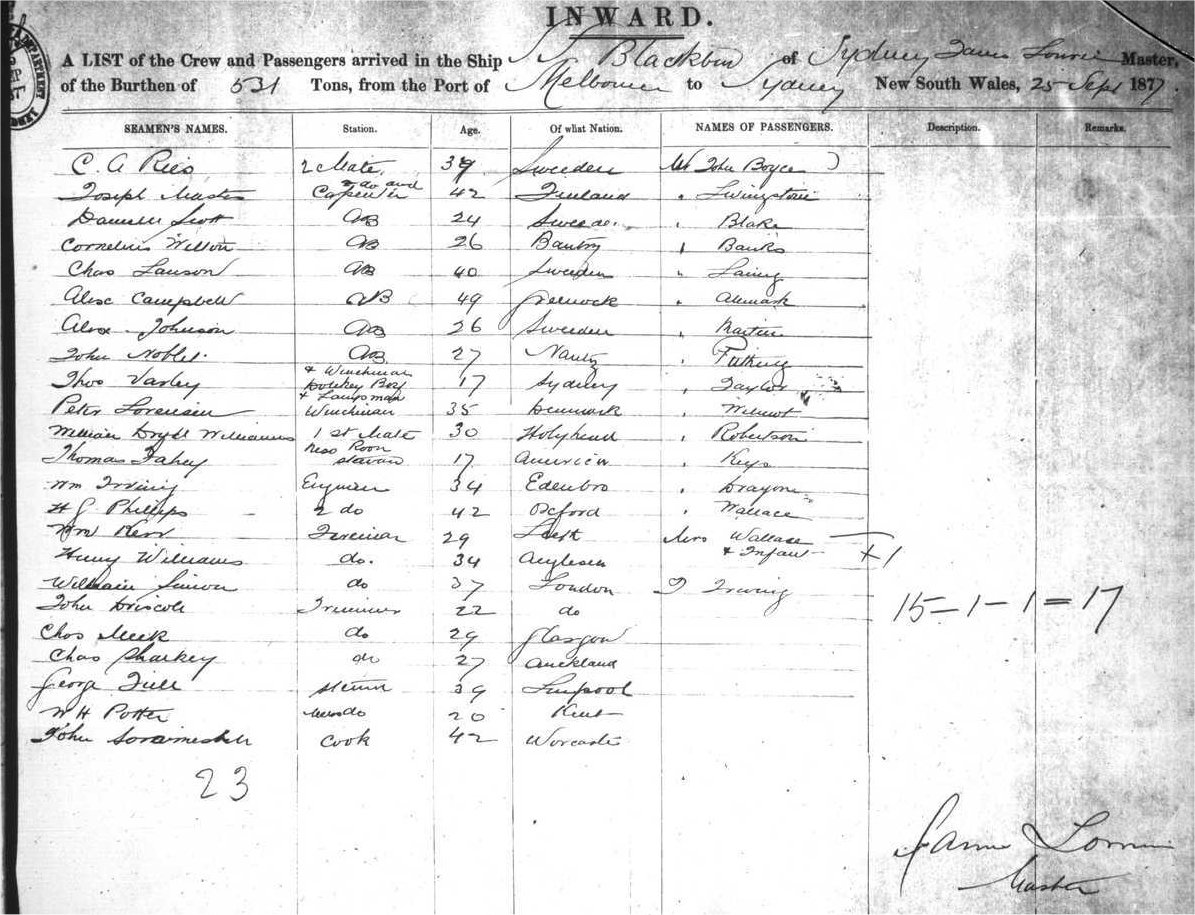 INWARD.
A LIST of the Crew and Passengers arrived in the Ship Blackbird of Sydney James Lowrie Master,
of the Burthen of 531 Tons, from the Port of Melbourne to Sydney New South Wales, 25 Sept 1877.
SEAMEN'S NAMES. Station. Age. Of what Nation. NAMES OF PASSENGERS. Description. Remarks.
C. A Ries 2 Mate 39 Sweden Mr John Boyce
Joseph Masters do and Carpenter 42 Finland " Livingstone
Scott AB 24 Swede. " Blake
Cornelius AB 26 Bantry " Banks
Chas Lawson AB 40 Sweden " Laing
Alex Campbell AB 49 Greenock "
Alex Johnson AB 26 Sweden " Martin
John Noble. AB 27 "
Thos Varley & Winchman Donkey Boy 17 Sydney " Taylor
Peter Lorensen & Lampsman Winchman 35 Denmark " Wilmot
William Williams 1st Mate 30 Holyhead " Robertson
Thomas Fahey Mess Room Steward 17 America " Keys
Wm Irving Engineer 34 Edenbro "
H G Phillips 2 do 42 Oxford " Wallace
Wm Kerr Fireman 29 Leith Mrs Wallace
& Infant +1
Henry Williams do. 34 Anglesea
William Simon do 37 London Irving
15-1-1=17
John Driscoll Trimmer 22 do
Chas Meek do 29 Glasgow
Chas Sharkey do 27 Auckland
George Tull Steward 39 Liverpool
W H Potter do 20 Kent
John Cook 42 Worcester
23
James Lowrie
Master